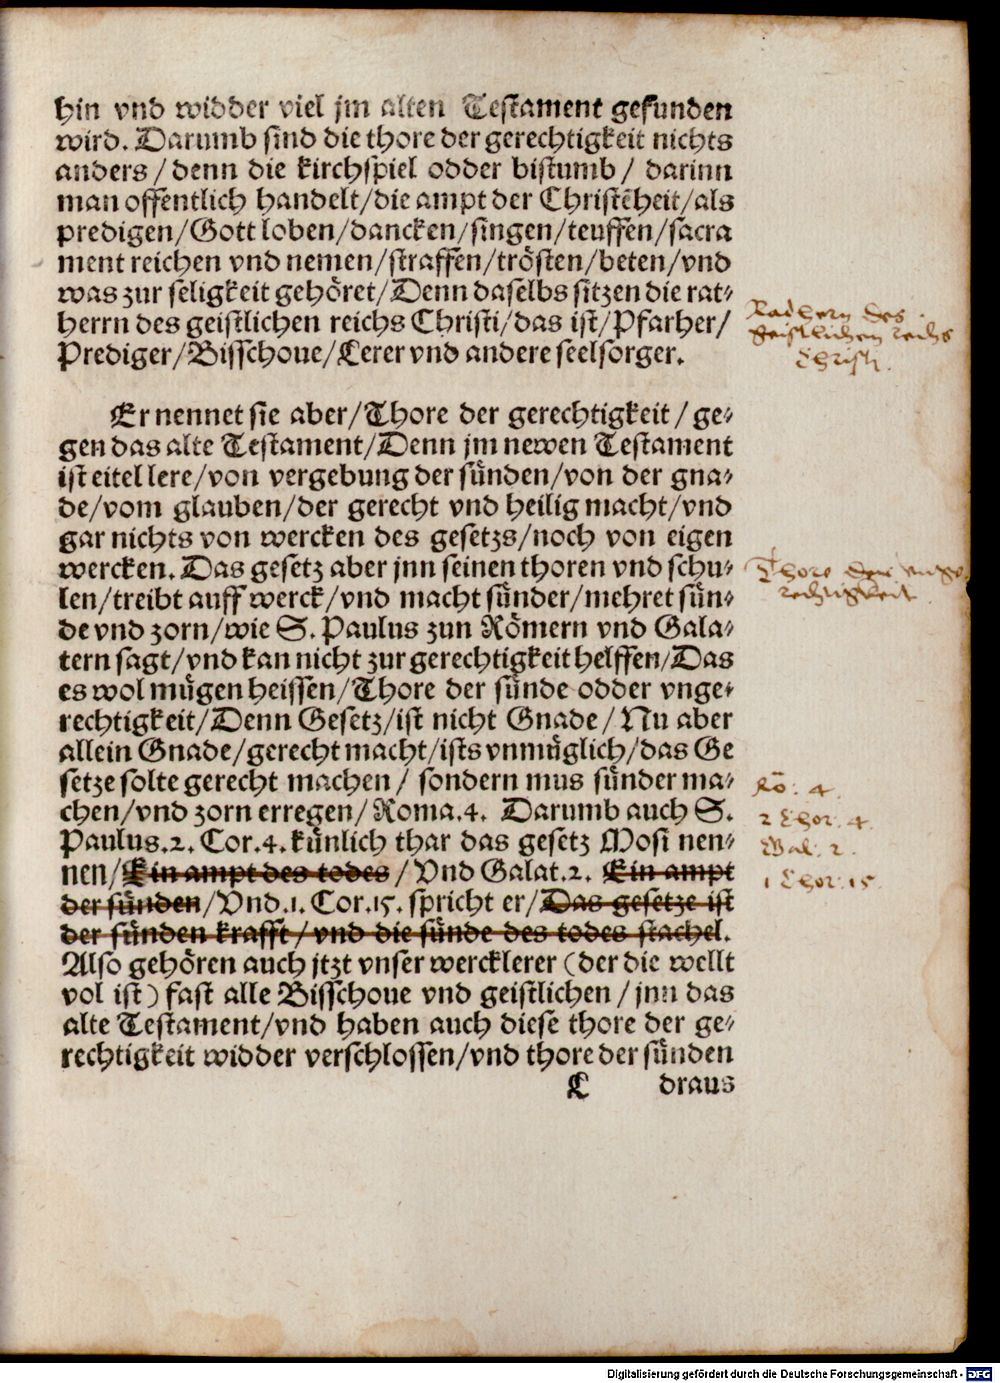 hin vnd widder viel jm alten Testament gefunden
wird. Darumb sind die thore der gerechtigkeit nichts
anders/denn die kirchspiel odder bistumb/ darinn
man offentlich handelt/die ampt der Christēheit/als
predigen/Gott loben/dancken/singen/teuffen/sacra
ment reichen vnd nemen/straffen/trösten/beten/vnd
was zur seligkeit gehöret/Denn daselbs sitzen die rat⸗
herrn des geistlichen reichs Christi/das ist/Pfarher/
Prediger/Bisschoue/Lerer vnd andere seelsorger.
Radhern des
geistlichen reichs
Christi.
Er nennet sie aber/Thore der gerechtigkeit/ge⸗
gen das alte Testament/Denn jm newen Testament
ist eitel lere/von vergebung der sünden/von der gna⸗
de/vom glauben/der gerecht vnd heilig macht/vnd
gar nichts von wercken des gesetzs/noch von eigen
wercken. Das gesetz aber jnn seinen thoren vnd schu⸗
len/treibt auff werck/vnd macht sünder/mehret sün⸗
de vnd zorn/wie S. Paulus zun Römern vnd Gala⸗
tern sagt/vnd kan nicht zur gerechtigkeit helffen/Das
es wol mügen heissen/Thore der sünde odder vnge⸗
rechtigkeit/Denn Gesetz/ist nicht Gnade/Nu aber
allein Gnade/gerecht macht/ists vnmüglich/das Ge
setze solte gerecht machen/ sondern mus sünder ma⸗
chen/vnd zorn erregen/Roma.4. Darumb auch S.
Paulus.2. Cor.4. künlich thar das gesetz Mosi nen⸗
nen/Ein ampt des todes/Vnd Galat.2. Ein ampt
der sünden/Vnd.1. Cor.15. spricht er/Das gesetze ist
der sünden krafft/vnd die sünde des todes stachel.
Also gehören auch jtzt vnser wercklerer (der die wellt
vol ist) fast alle Bisschoue vnd geistlichen/jnn das
alte Testament/vnd haben auch diese thore der ge⸗
rechtigkeit widder verschlossen/vnd thore der sünden
Thore der vnge
rechtigkeit
Rō. 4.
2 Chor. 4.
Gal. 2.
1 Chor. 15.
C draus
Digitalisierung gefördert durch die Deutsche Forschungsgemeinschaft - DFG